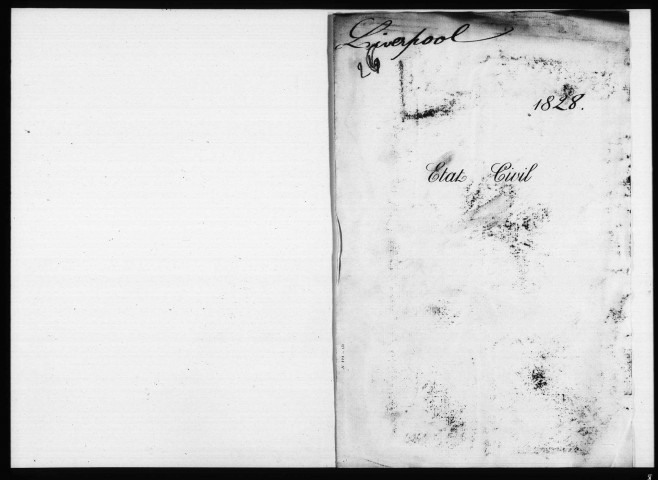 Liverpool
1828.
Etat Civil